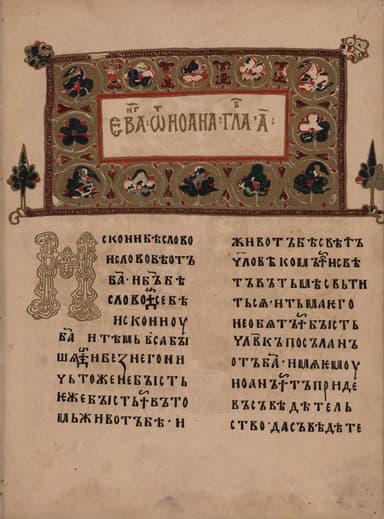 ЕВА҃Г·ѾИОАНА·ГЛА҃В·А҃:
ИСКОНИБѢСЛОВО
ИСЛОВОБѢОТЪ
Б҃А·ИБ҃ЪБѢ
СЛОВО·СЕБѢ
ИСКОНИОУ
Б҃А ИТѢМЬВСАБЫ
ШѦ·ИБЕЗНЕГОНИ
ЧЬТОЖЕНЕБЫСТЬ
ѤЖЕБЫСТЬ·ВЪТО
МЬЖИВОТЪБѢ·И
ЖИВОТЪБѢСВѢТЪ
ЧЛОВѢКОМЪ·ИСВѢ
ТЪВЪТЬМѢСВЬТИ
ТЬСѦ·ИТЬМАѤГО
НЕОБѦТЪ·БЫСТЬ
ЧЛ҃ВКЪПОСЪЛАНЪ
ОТЪБ҃А·ИМѦѤМОУ
ИОАНЪ·ТЪПРИДЕ
ВЪСЪВѢДѢТЕЛЬ
СТВО·ДАСЪВѢДѢТЕ